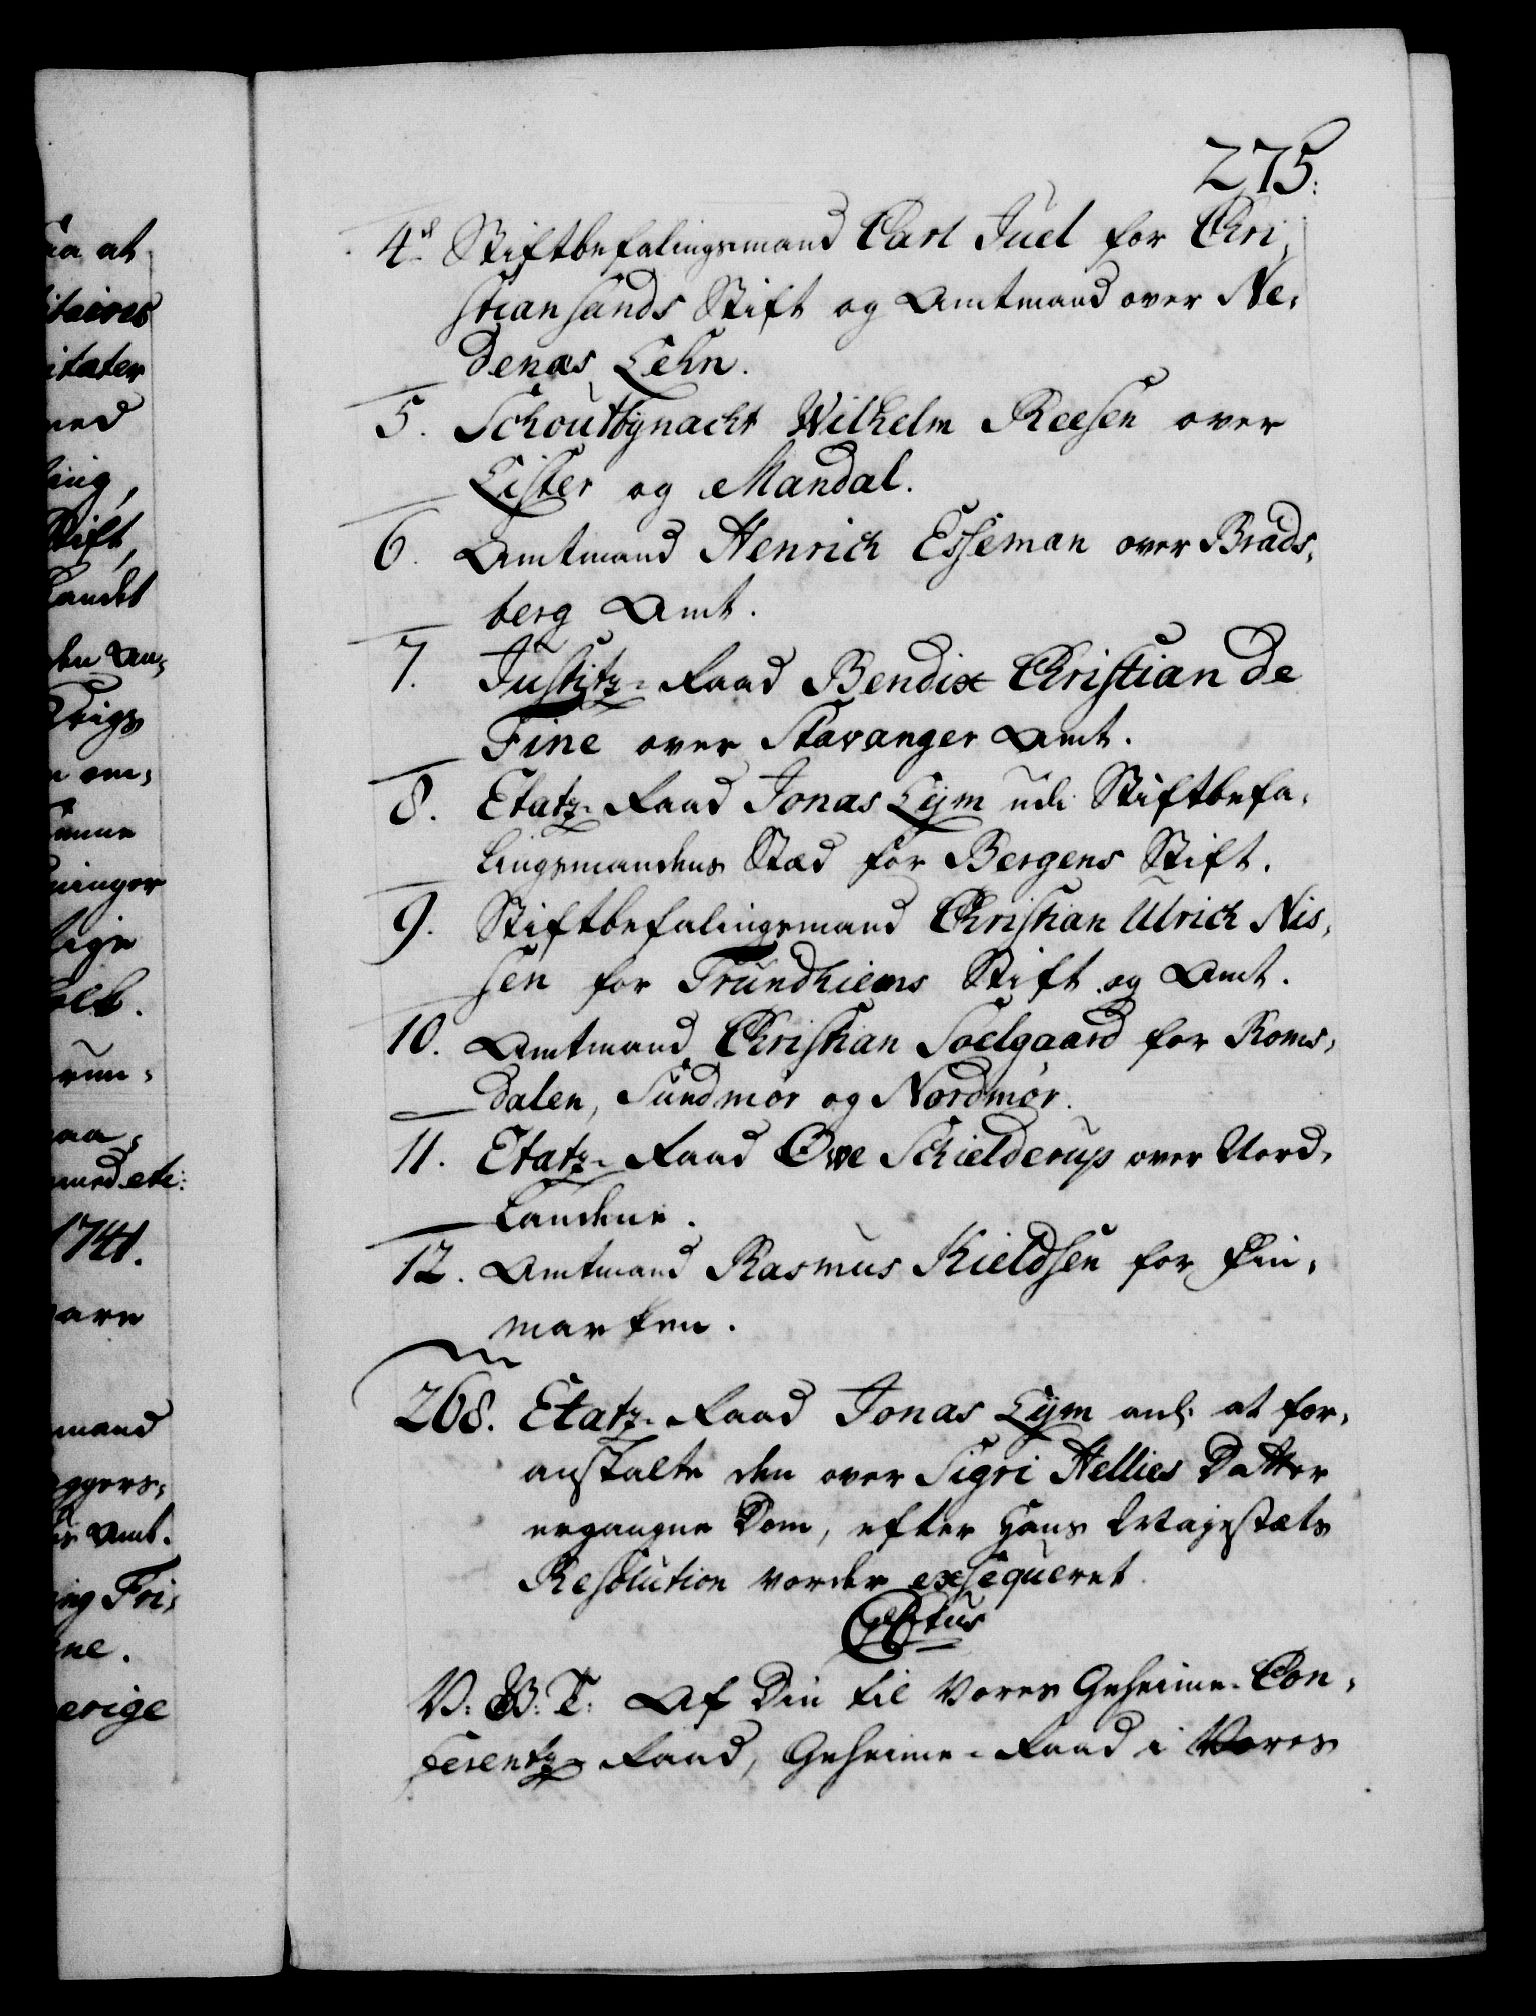 275.
4. Stiftbefalingsmand Carl Juel for Chri-
stiansands Stift og Amtmand over Ne-
denæs Lehn.
5. Schoutbÿnacht Wilhelm Reesen over
Lister og Mandal.
6. Amtmand Henrich Esseman over Brads-
berg Amt.
7. Justitz-Raad Bendix Christian de
Fine over Stavanger Amt.
8. Etatz-Raad Jonas Lÿm udi Stiftbefa-
lingsmandens Stæd for Bergens Stift.
9. Stiftbefalingsmand Christian Ulrich Nis-
sen for Trundhiems Stift og Amt.
10. Amtmand Christian Soelgaard for Roms-
dalen, Sundmør og Nordmør.
11. Etatz-Raad Ove Schielderup over Nord-
Landene.
12. Amtmand Rasmus Kieldsen for Fin-
marken.
268. Etatz-Raad Jonas Lÿm anl: at for-
anstalte den over Sigri Hellies Datter
ergangne Dom, efter Hans Mayestæts
Resolution vorder exseqveret.
CStus
V: G: T: Af Din til Vores Geheime-Con-
ferentz-Raad, Geheime-Raad i Vores
aa at
litaires
itater
med
ling,
Stift,
Landet
den An-
Krigs
om-
ninger
lige
med etc:
1741.
vare
mand
Aggers-
Amt.
ing Fri-
ne.
erige